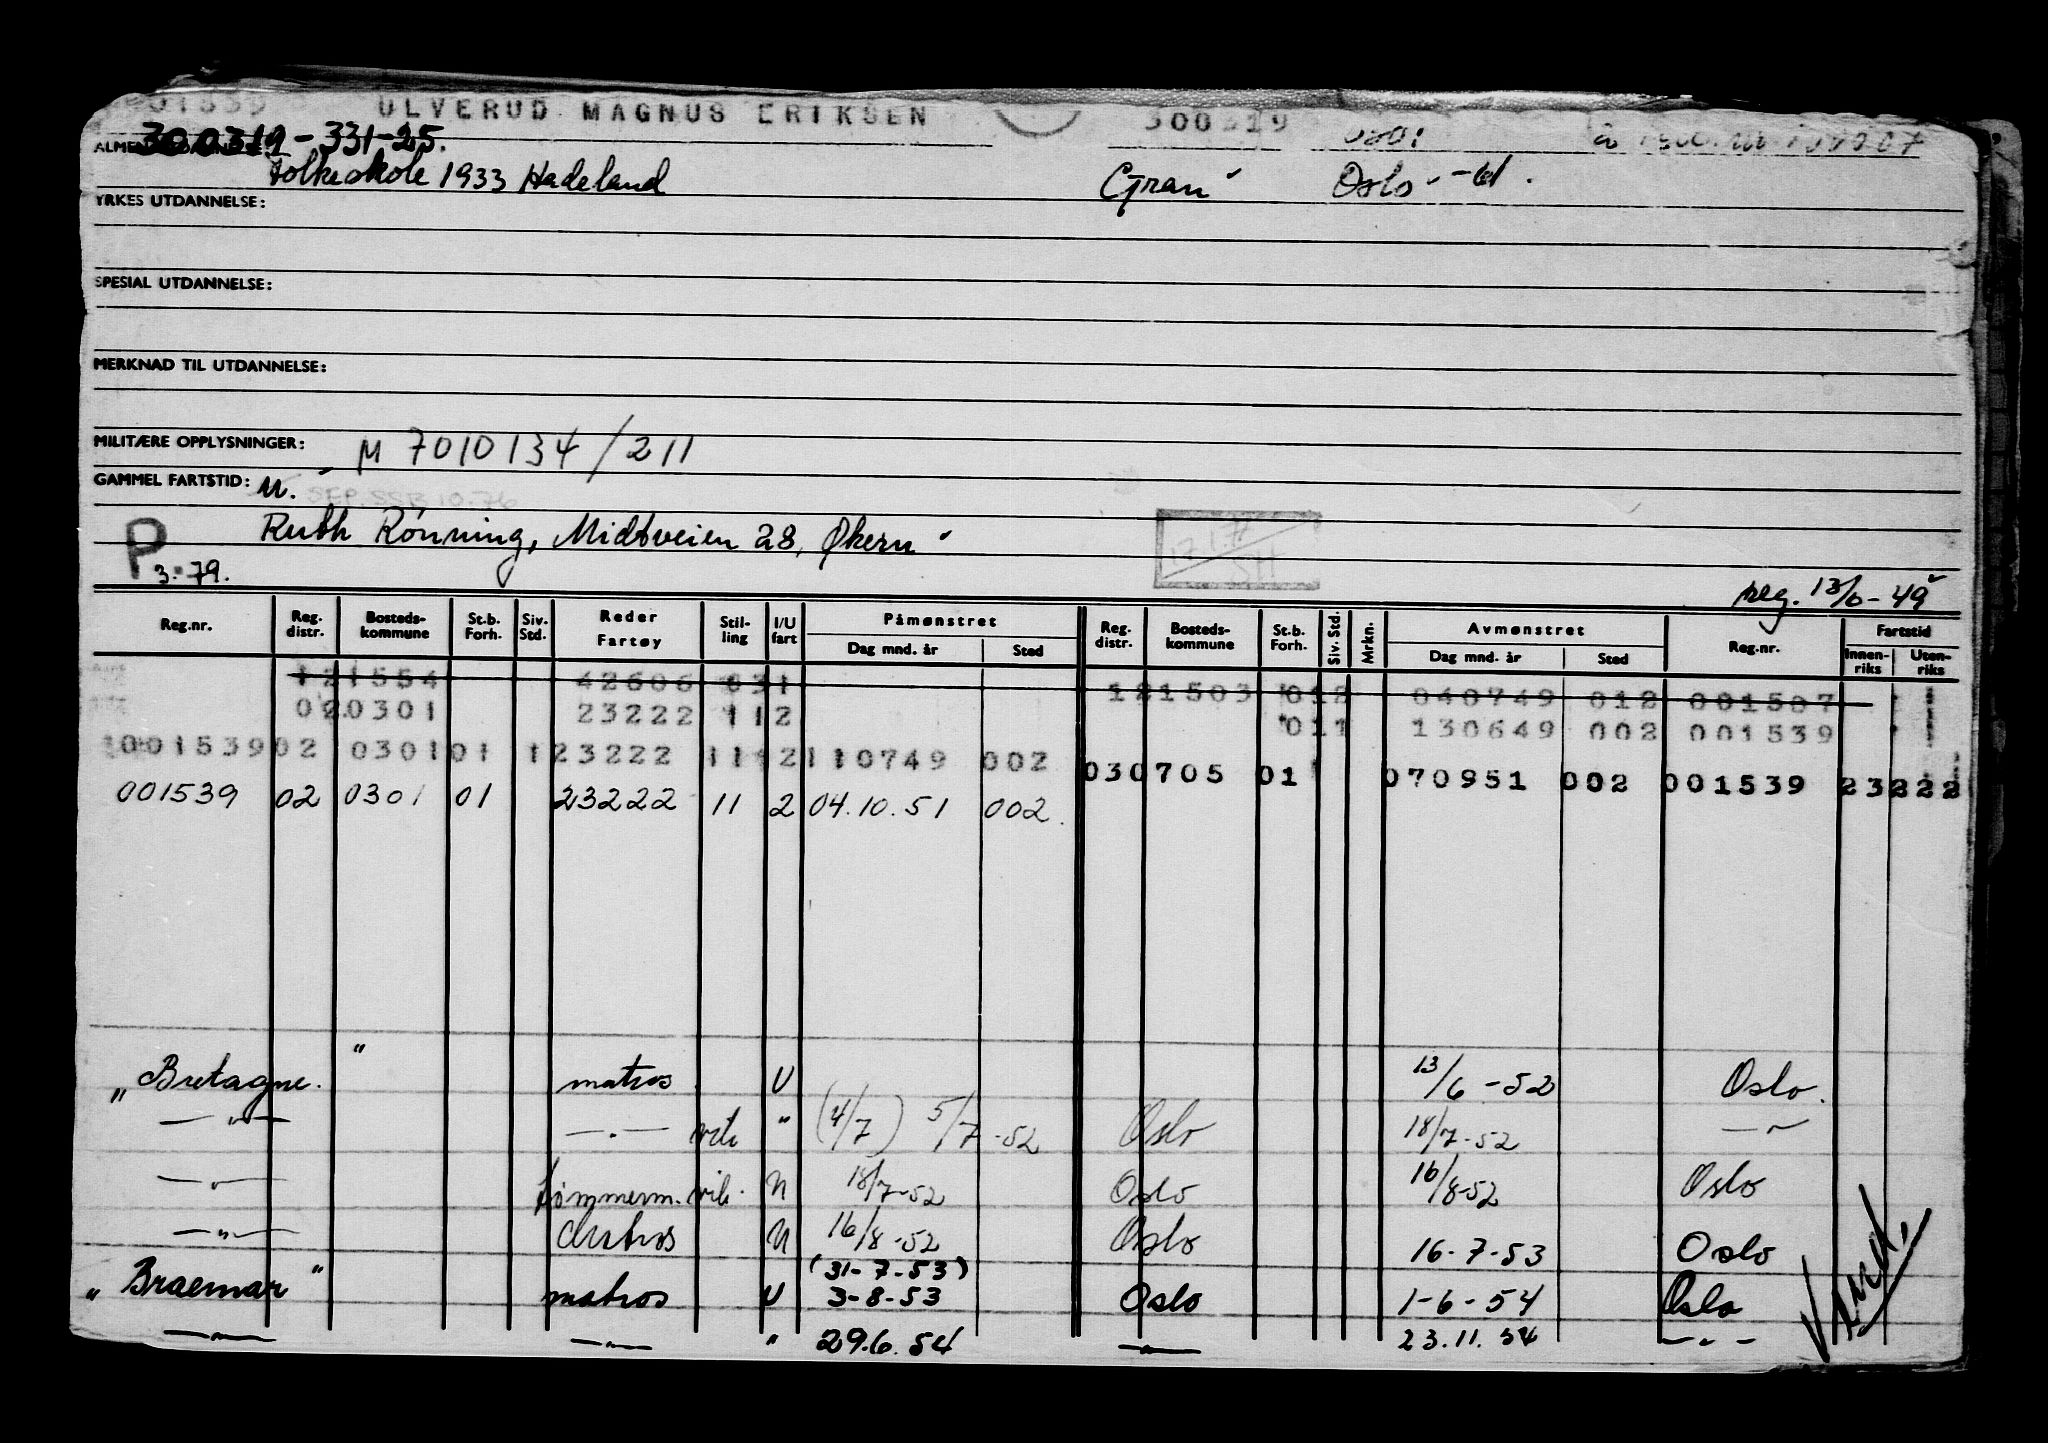 001539 ULVERUD MAGNUS ERIKSEN 300319
300319-331-25.
Folkeskole 1933 Hadeland Gran Oslo
YRKES UTDANNELSE:
SPESIAL UTDANNELSE:
MERKNAD TIL UTDANNELSE:
MILITÆRE OPPLYSNINGER: M 7010134/211
GAMMEL FARTSTID: u. SEP. SSB 10.76
P Ruth Rönning, Midtveien 28, Økern
3.-79. reg. 13/6-49
Reg.nr. Reg. distr. Bosteds-kommune St.b. Forh. Siv. Std. Reder Fartøy Stil-ling I/U fart Påmønstret Dag mnd. år Sted Reg. distr. Bosteds-kommune St.b. Forh. Siv. Std. Mrkn. Avmønstret Dag mnd. år Sted Reg.nr. Fartstid Innen-riks Uten-riks
121554 42606 631 121503 012 040749 012 001507
020301 23222 112 011 130649 002 001539
001539 02 0301 01 1 23222 11 2 110749 002 030705 01 070951 002 001539 23222
001539 02 0301 01 23222 11 2 04.10.51 002
"Bretagne" matros U 13/6-52 Oslo.
—"— —.— vik " (4/7) 5/7-52 Oslo 18/7-52 —"—
—"— tømmerm. vik. U 18/7-52 Oslo 16/8-52 Oslo
—"— Matros U 16/8-52 Oslo 16-7-53 Oslo
(31-7-53)
"Braemar" matros U 3-8-53 Oslo 1-6-54 Oslo
—"— —"— " 29.6.54 —"— 23.11.54 —"—